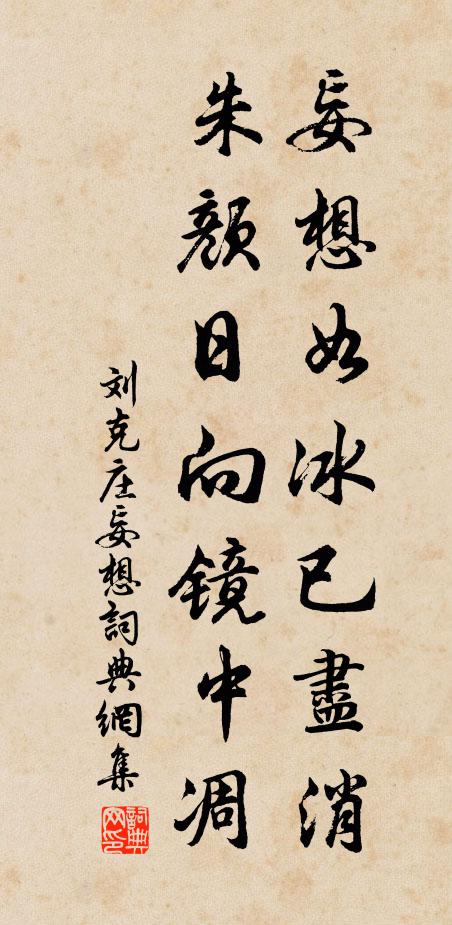 妄想如冰已盡消
朱顏日向镜中凋
刘克庄妄想詞典網集
詞典
网印